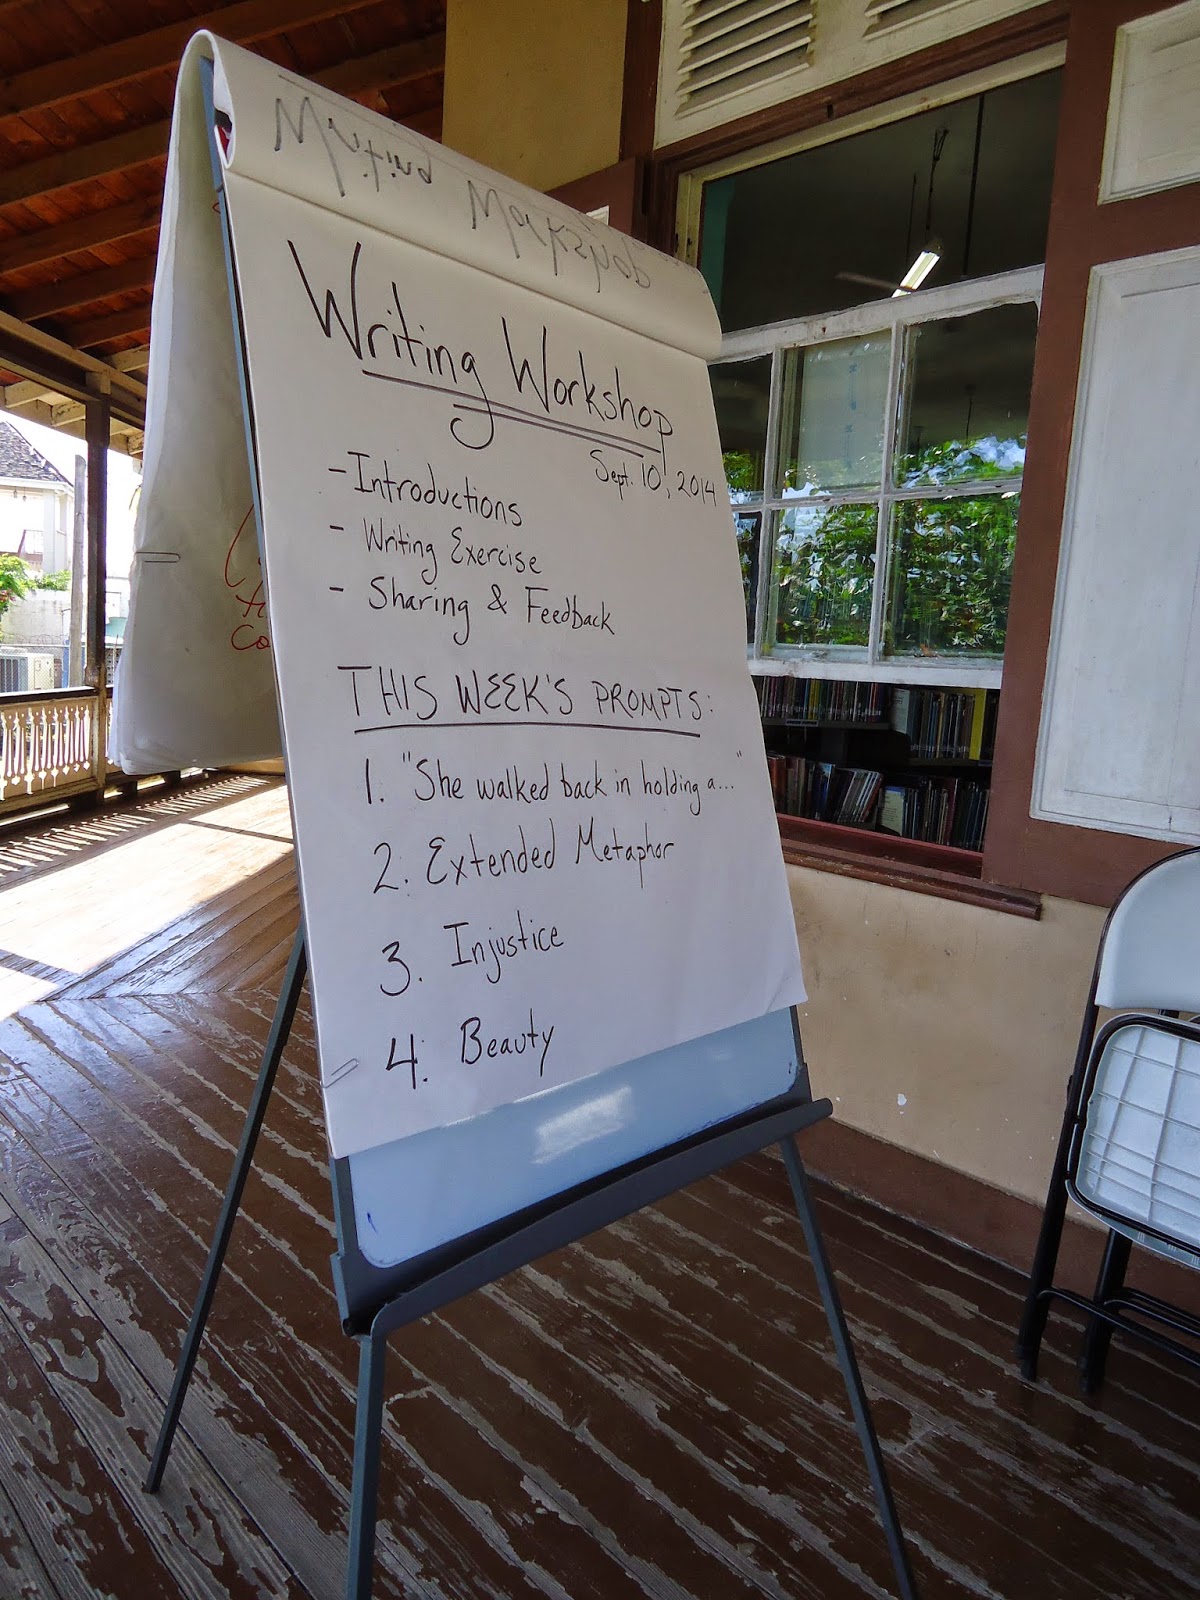 Writing Workshop
Writing Workshop
Sept. 10, 2014
- Introductions
- Writing Exercise
- Sharing & Feedback
THIS WEEK'S PROMPTS:
1. "She walked back in holding a..."
2. Extended Metaphor
3. Injustice
4. Beauty